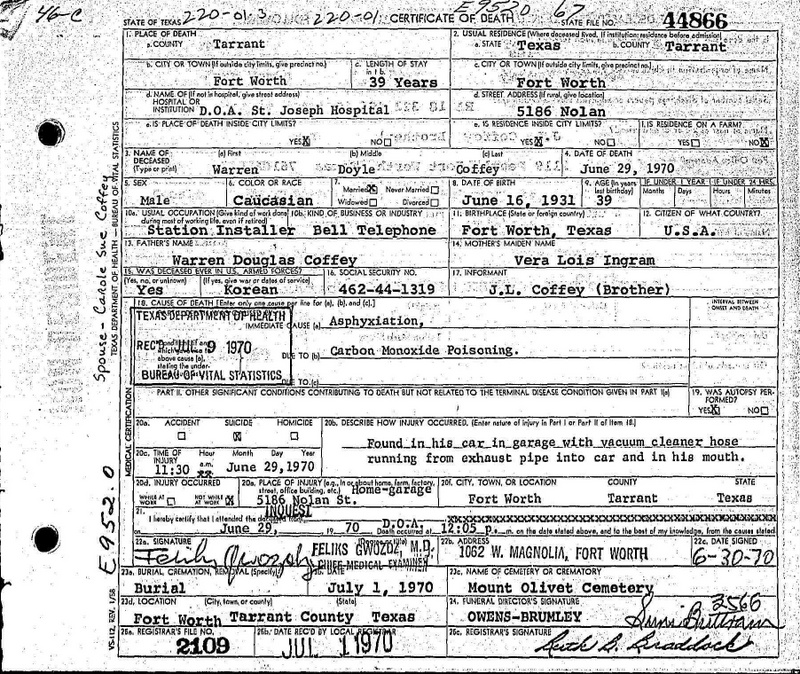 46-C
220-01.3 220-01 E9520 67
STATE OF TEXAS CERTIFICATE OF DEATH STATE FILE NO. 44866
1. PLACE OF DEATH
a. COUNTY Tarrant
2. USUAL RESIDENCE (Where deceased lived. If institution: residence before admission)
a. STATE Texas b. COUNTY Tarrant
b. CITY OR TOWN (If outside city limits, give precinct no.)
Fort Worth
c. LENGTH OF STAY
in 1 b.
39 Years
c. CITY OR TOWN (If outside city limits, give precinct no.)
Fort Worth
d. NAME OF (If not in hospital, give street address)
HOSPITAL OR
INSTITUTION D.O.A. St. Joseph Hospital
d. STREET ADDRESS (If rural, give location)
5186 Nolan
e. IS PLACE OF DEATH INSIDE CITY LIMITS?
YES X NO
e. IS RESIDENCE INSIDE CITY LIMITS?
YES X NO
f. IS RESIDENCE ON A FARM?
YES NO X
3. NAME OF
DECEASED
(Type or print)
(a) First (b) Middle (c) Last
Warren Doyle Coffey
4. DATE OF DEATH
June 29, 1970
5. SEX
Male
6. COLOR OR RACE
Caucasian
7.
Married X Never Married
Widowed Divorced
8. DATE OF BIRTH
June 16, 1931
9. AGE (In years
last birthday)
39
IF UNDER 1 YEAR IF UNDER 24 HRS.
Months Days Hours Minutes
10a. USUAL OCCUPATION (Give kind of work done
during most of working life, even if retired)
Station Installer
10b. KIND OF BUSINESS OR INDUSTRY
Bell Telephone
11. BIRTHPLACE (State or foreign country)
Fort Worth, Texas
12. CITIZEN OF WHAT COUNTRY?
U.S.A.
13. FATHER'S NAME
Warren Douglas Coffey
14. MOTHER'S MAIDEN NAME
Vera Lois Ingram
15. WAS DECEASED EVER IN U.S. ARMED FORCES?
(Yes, no, or unknown) (If yes, give war or dates of service)
Yes Korean
16. SOCIAL SECURITY NO.
462-44-1319
17. INFORMANT
J.L. Coffey (Brother)
18. CAUSE OF DEATH [Enter only one cause per line for (a), (b), and (c).]
INTERVAL BETWEEN
ONSET AND DEATH
TEXAS DEPARTMENT OF HEALTH
REC'D JUL 9 1970
BUREAU OF VITAL STATISTICS
IMMEDIATE CAUSE (a) Asphyxiation,
above cause (a),
stating the under-
DUE TO (b) Carbon Monoxide Poisoning.
DUE TO (c)
PART II. OTHER SIGNIFICANT CONDITIONS CONTRIBUTING TO DEATH BUT NOT RELATED TO THE TERMINAL DISEASE CONDITION GIVEN IN PART I(a)
19. WAS AUTOPSY PER-
FORMED?
YES X NO
20a. ACCIDENT SUICIDE HOMICIDE
X
20b. DESCRIBE HOW INJURY OCCURRED. (Enter nature of injury in Part I or Part II of item 18.)
Found in his car in garage with vacuum cleaner hose
running from exhaust pipe into car and in his mouth.
20c. TIME OF
INJURY
Hour Month Day Year
11:30 a.m. June 29, 1970
20d. INJURY OCCURRED
WHILE AT
WORK
NOT WHILE
AT WORK X
20e. PLACE OF INJURY (e.g., in or about home, farm, factory,
street, office building, etc.) Home-garage
5186 Nolan St.
20f. CITY, TOWN, OR LOCATION COUNTY STATE
Fort Worth Tarrant Texas
21. INQUEST
I hereby certify that I attended the deceased
June 29, 19 70 D.O.A.
Death occurred at 12:05 p. m. on the date stated above, and to the best of my knowledge, from the causes stated
22a. SIGNATURE
Feliks Gwozdz
FELIKS GWOZDZ, M.D.
CHIEF MEDICAL EXAMINER
22b. ADDRESS
1062 W. MAGNOLIA, FORT WORTH
22c. DATE SIGNED
6-30-70
23a. BURIAL, CREMATION, REMOVAL (Specify)
Burial
23b. DATE
July 1, 1970
23c. NAME OF CEMETERY OR CREMATORY
Mount Olivet Cemetery
23d. LOCATION (City, town, or county) (State)
Fort Worth Tarrant County Texas
24. FUNERAL DIRECTOR'S SIGNATURE
3566
OWENS-BRUMLEY
25a. REGISTRAR'S FILE NO.
2109
25b. DATE REC'D BY LOCAL REGISTRAR
JUL 1 1970
25c. REGISTRAR'S SIGNATURE
Ruth G. Braddock
Spouse - Carole Sue Coffey
E952.0
TEXAS DEPARTMENT OF HEALTH — BUREAU OF VITAL STATISTICS
MEDICAL CERTIFICATION
VS-112, REV. 1/58